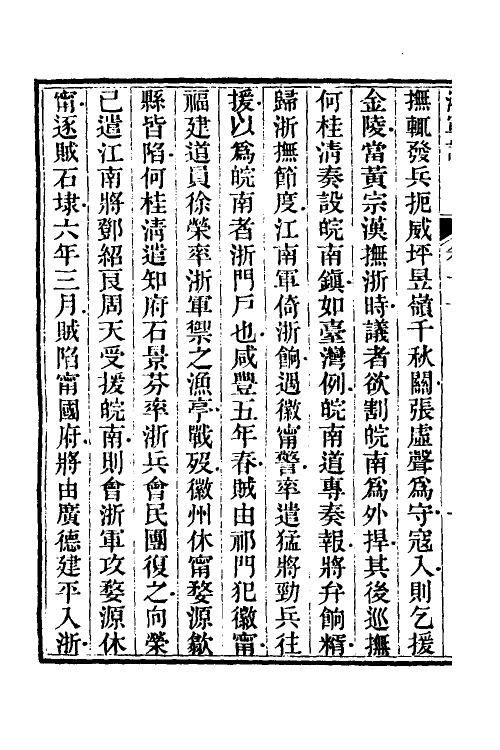 撫輒發兵扼威坪昱嶺千秋關張虛聲爲守寇入則乞援
金陵當黃宗漢撫浙時議者欲割皖南爲外捍其後巡撫
何桂淸奏設皖南鎭如臺灣例皖南道專奏報將弁餉糈
歸浙撫節度江南軍倚浙餉遇徽甯警率遣猛將勁兵往
援以爲皖南者浙門戶也咸豐五年春賊由祁門犯徽甯
福建道員徐榮率浙軍禦之漁亭戰歿徽州休甯婺源歙
縣皆陷何桂淸遣知府石景芬率浙兵會民團復之向榮
已遣江南將鄧紹良周天受援皖南則會浙軍攻婺源休
甯逐賊石埭六年三月賊陷甯國府將由廣德建平入浙